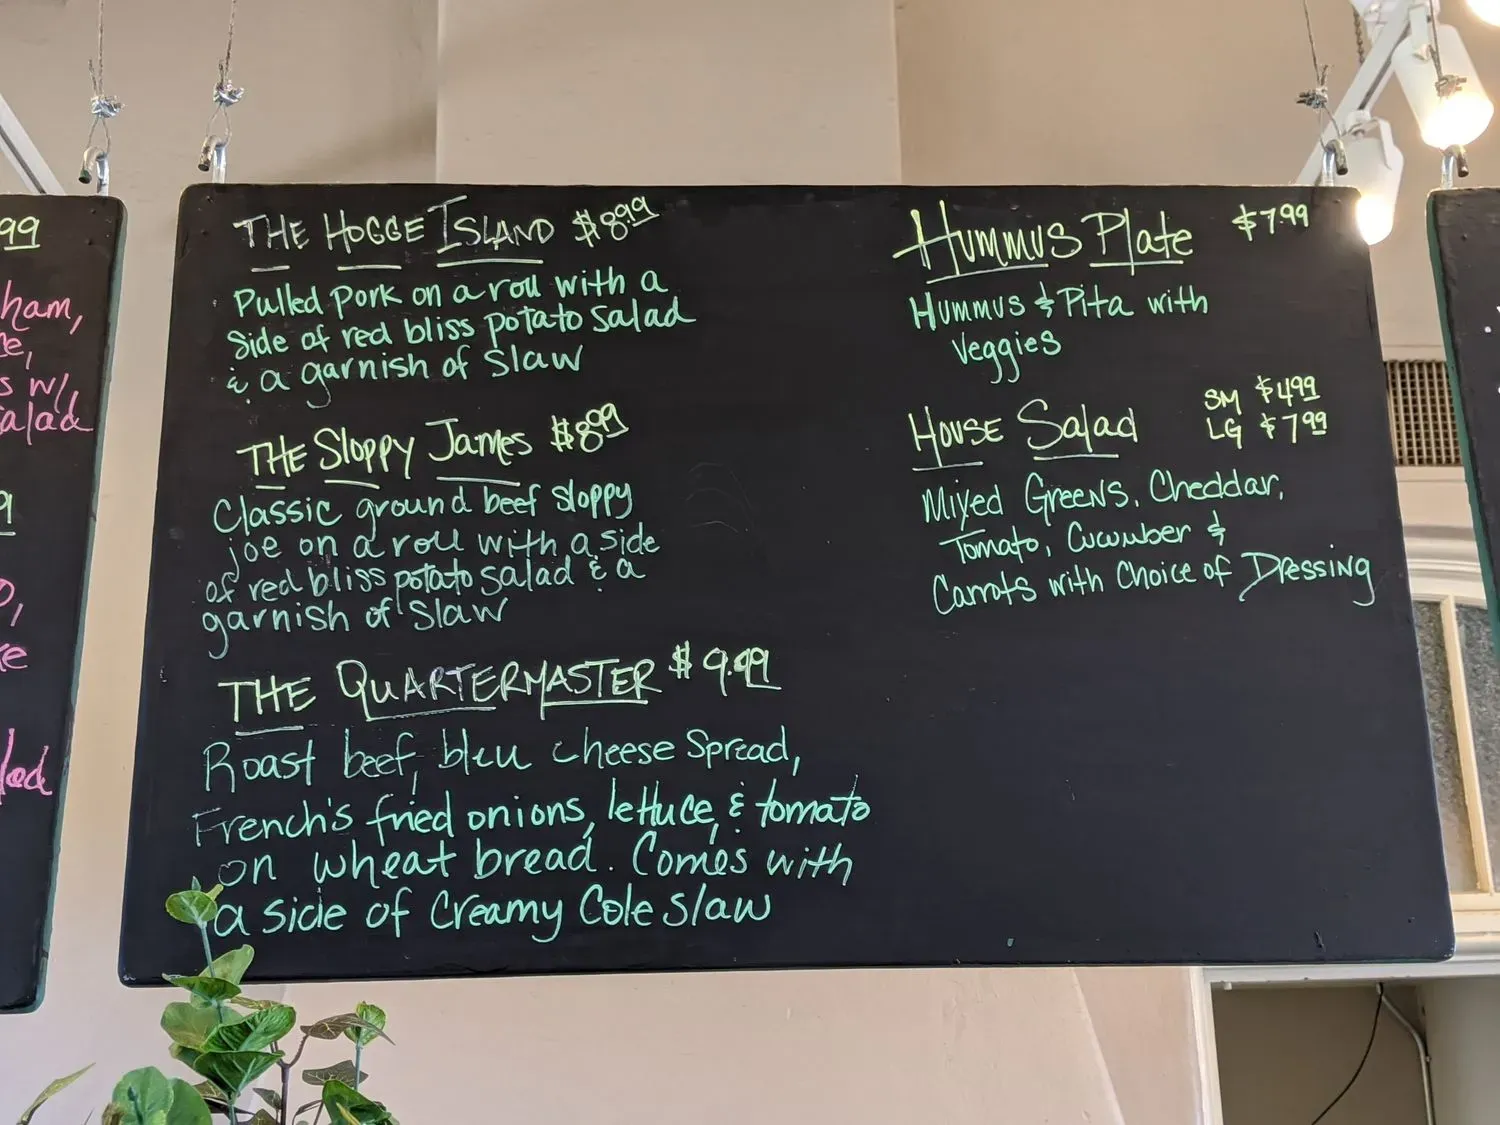 99
ham,
s w/
alad
9
THE HOGGE ISLAND $8.99
Pulled pork on a roll with a
side of red bliss potato salad
& a garnish of slaw
THE Sloppy James $8.99
Classic ground beef sloppy
joe on a roll with a side
of red bliss potato salad & a
garnish of slaw
THE QUARTERMASTER $9.99
Roast beef, bleu cheese spread,
French's fried onions, lettuce, & tomato
on wheat bread. Comes with
a side of Creamy Cole slaw
Hummus Plate $7.99
Hummus & Pita with
Veggies
House Salad SM $4.99
LG $7.99
Mixed Greens, Cheddar,
Tomato, Cucumber &
Carrots with Choice of Dressing